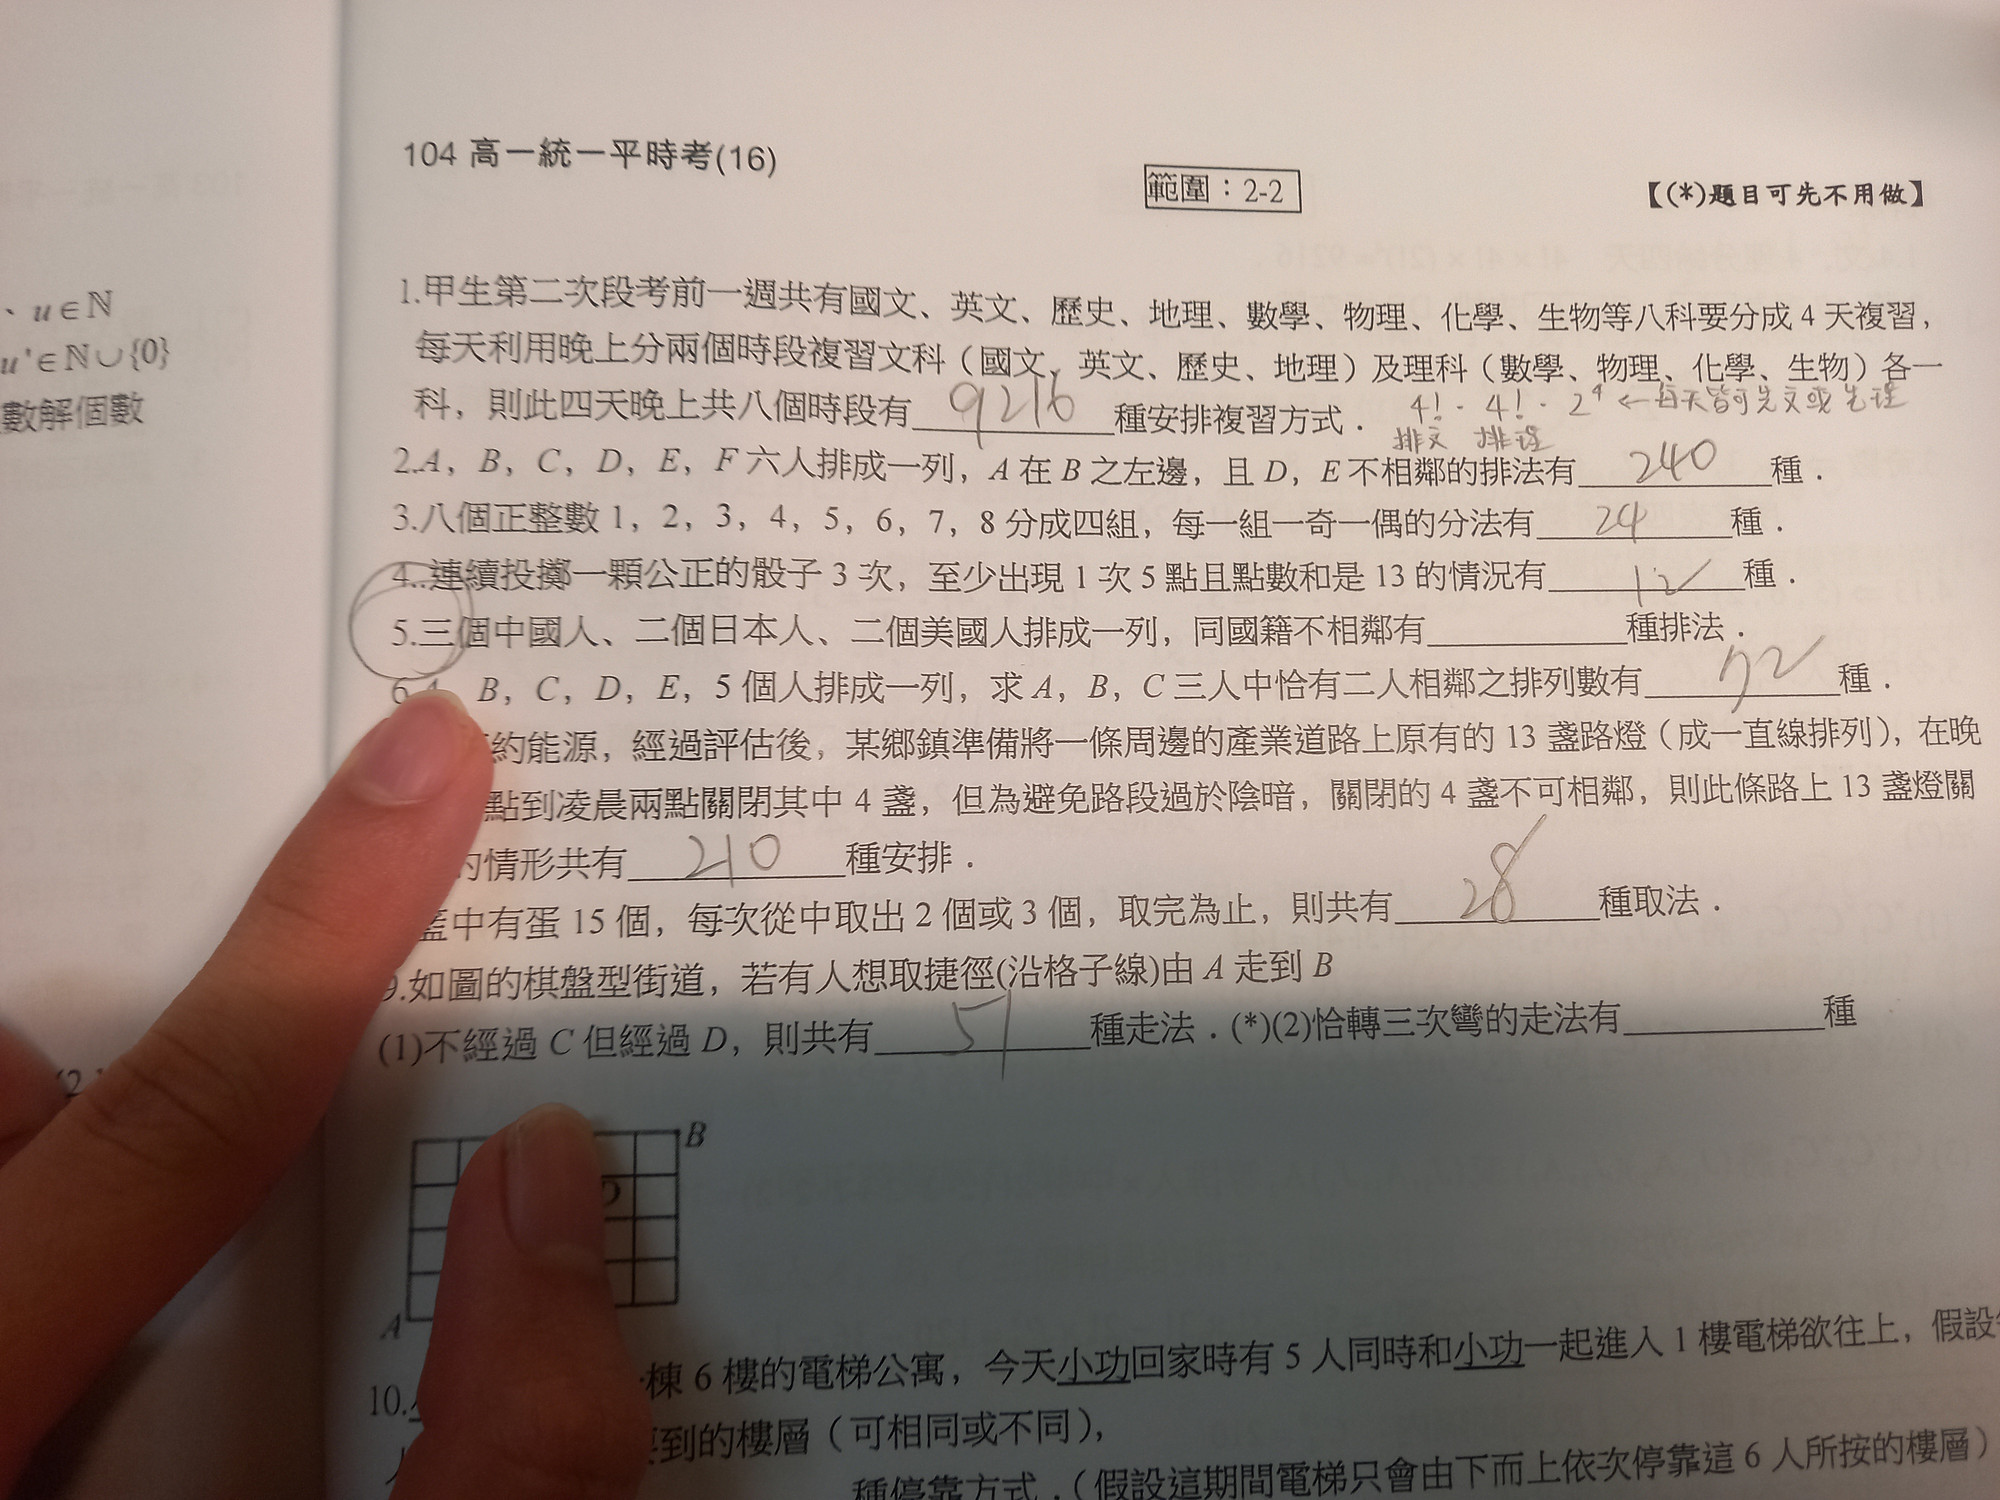 104 高一統一平時考(16)
範圍：2-2
【(*)題目可先不用做】
、u∈ℕ
u'∈ℕ∪{0}
數解個數
1.甲生第二次段考前一週共有國文、英文、歷史、地理、數學、物理、化學、生物等八科要分成 4 天複習，
每天利用晚上分兩個時段複習文科（國文、英文、歷史、地理）及理科（數學、物理、化學、生物）各一
科，則此四天晚上共八個時段有 9216 種安排複習方式． 4!·4!·2⁴ ←每天皆可先文或先理
排文 排理
2.A，B，C，D，E，F 六人排成一列，A 在 B 之左邊，且 D，E 不相鄰的排法有 240 種．
3.八個正整數 1，2，3，4，5，6，7，8 分成四組，每一組一奇一偶的分法有 24 種．
4..連續投擲一顆公正的骰子 3 次，至少出現 1 次 5 點且點數和是 13 的情況有 12 種．
5.三個中國人、二個日本人、二個美國人排成一列，同國籍不相鄰有 種排法．
6. B，C，D，E，5 個人排成一列，求 A，B，C 三人中恰有二人相鄰之排列數有 72 種．
約能源，經過評估後，某鄉鎮準備將一條周邊的產業道路上原有的 13 盞路燈（成一直線排列），在晚
點到凌晨兩點關閉其中 4 盞，但為避免路段過於陰暗，關閉的 4 盞不可相鄰，則此條路上 13 盞燈關
的情形共有 210 種安排．
籃中有蛋 15 個，每次從中取出 2 個或 3 個，取完為止，則共有 28 種取法．
9.如圖的棋盤型街道，若有人想取捷徑(沿格子線)由 A 走到 B
(1)不經過 C 但經過 D，則共有 51 種走法．(*)(2)恰轉三次彎的走法有 種
B
D
A
10. 棟 6 樓的電梯公寓，今天小功回家時有 5 人同時和小功一起進入 1 樓電梯欲往上，假設
要到的樓層（可相同或不同），
種停靠方式．（假設這期間電梯只會由下而上依次停靠這 6 人所按的樓層）